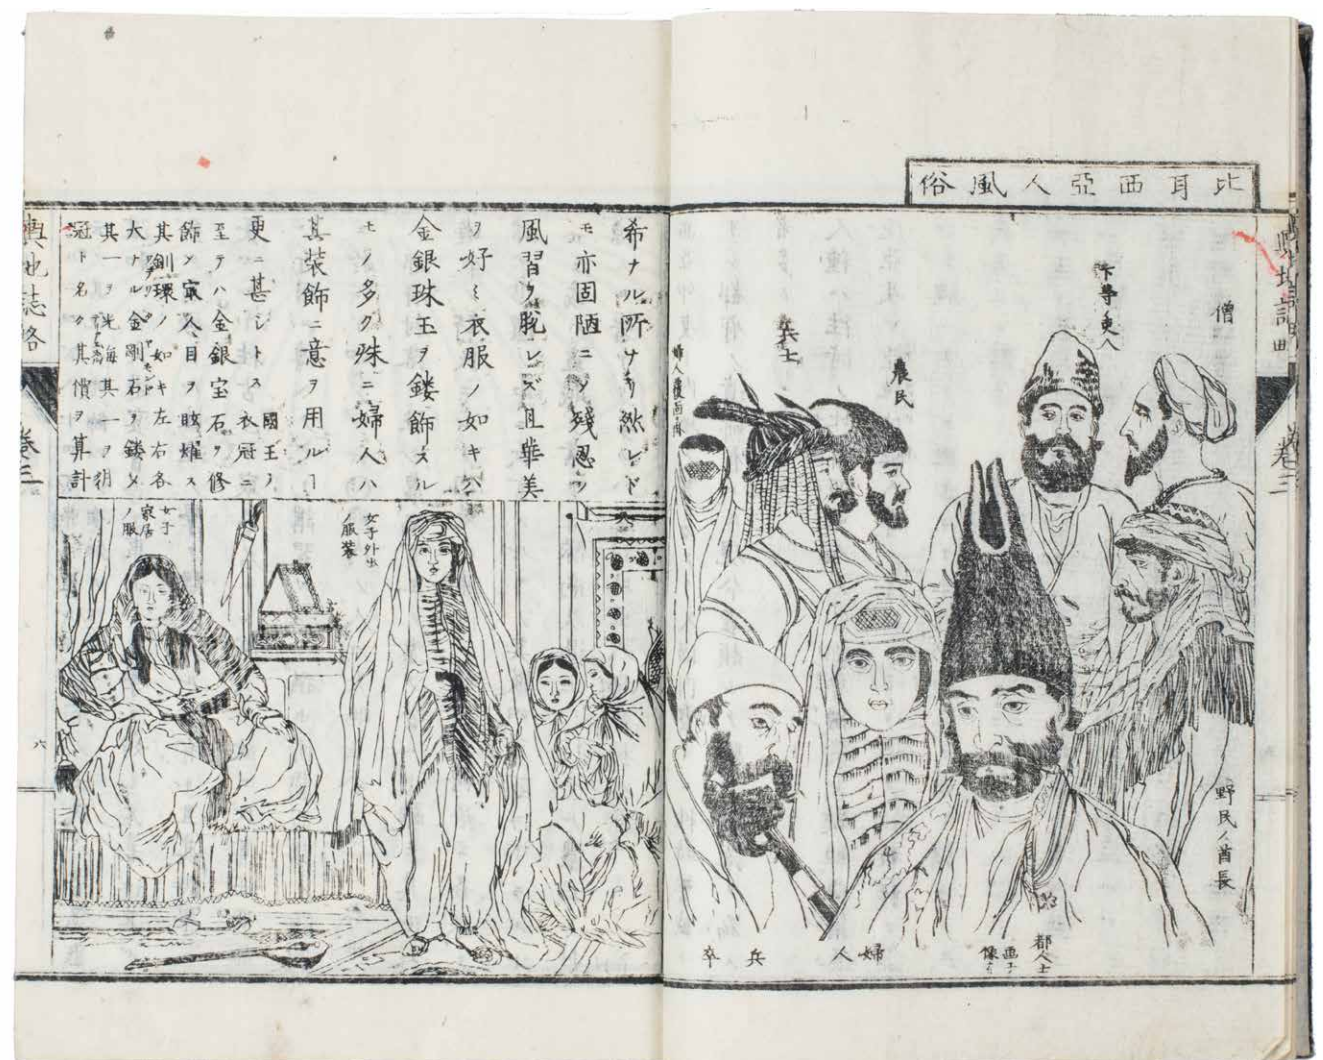 比耳西亞人風俗
僧
下等吏人
農民
兵士
婦人覆面ノ
野民ノ酋長
都人士
婦人
兵卒
希ナル所ナリ然レド
モ亦固陋ニ〆残忍ノ
風習ヲ脱レズ且華美
ヲ好ミ衣服ノ如キハ
金銀珠玉ヲ鏤飾スル
モノ多ク殊ニ婦人ハ
其装飾ニ意ヲ用ルヿ
更ニ甚シトス國王ノ衣冠ニ
至テハ金銀宝石ヲ修
飾シ家人目ヲ眩耀ス
其釧環ノ如キ左右各
大ナル金剛石ヲ鏤メ
其一ヲ光海其一ヲ
冠ト名ク其價ヲ算計
女子外出
ノ服装
女子
家居
ノ服
輿地誌略
巻三
六